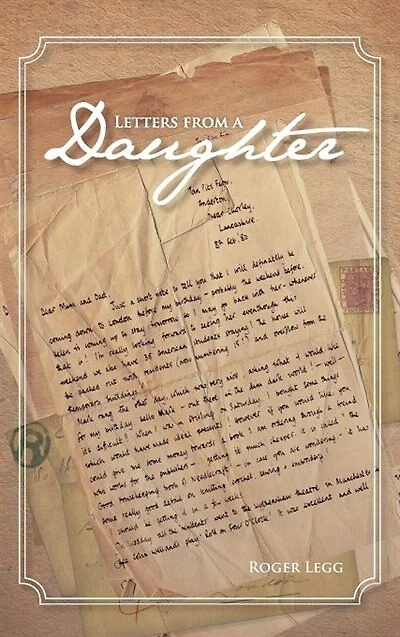 LETTERS FROM A
Daughter
Tan Pits Farm,
Anderton,
Near Chorley,
Lancashire.
8th Feb. '80
Dear Mum and Dad,
Just a short note to tell you that I will definately be
coming down to London before my birthday - probably the weekend before.
Helen is coming up to stay tomorrow so I may go back with her - whenever
that is! I'm really looking forward to seeing her eventhough this
weekend we also have 35 American students staying! The house will
be packed out with residents (now numbering 15!) and overflow from the
temporary buildings.
Mark rang the other day, which was very nice asking what I would like
for my birthday. hello Mark - out there in the dim dark world! - well -
it's difficult! When I was in on Saturday I bought some things
which would have made ideal presents! However if you would like you
could give me some money towards a book I am ordering through a friend
who works for the publisher - getting it much cheaper: it is called - the
Good housekeeping book of Needlecraft - in case you are wondering - it has
some really good detail on knitting crochet sewing & embroidery
should be getting it in a few weeks
On Tuesday all the 'students' went to the Wythenshawe theatre in Manchester
off Colin Wellands play! Roll on Four O'Clock! It was excellent and well
ROGER LEGG